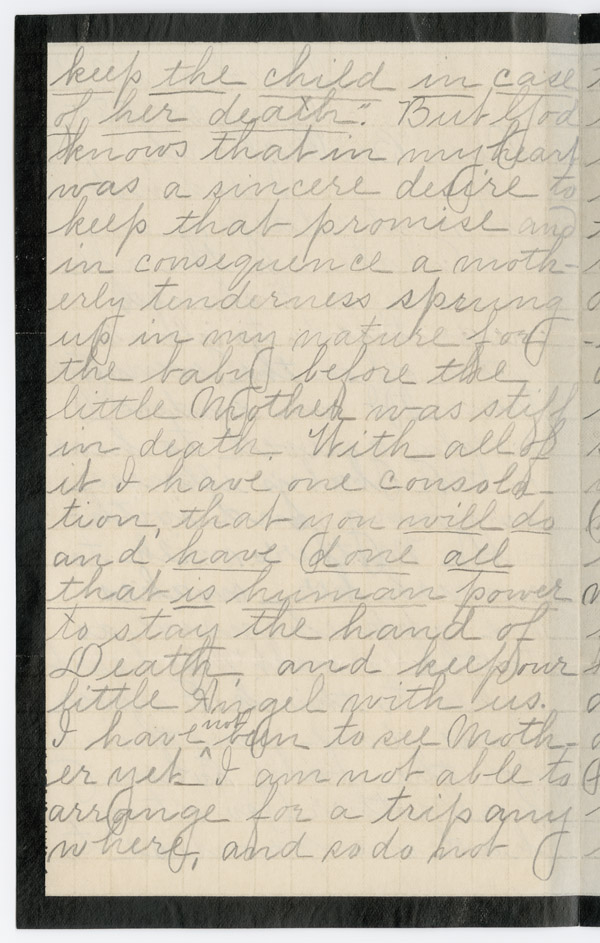 keep the child in case
of her death". But God
knows that in my heart
was a sincere desire to
keep that promise and
in consequence a moth-
erly tenderness sprung
up in my nature for
the baby before the
little Mother was stiff
in death. With all of
it I have one consola-
tion, that you will do
and have done all
that is human power
to stay the hand of
Death, and keep our
little Angel with us.
I have not been to see Moth-
er yet. I am not able to
arrange for a trip any
where, and so do not